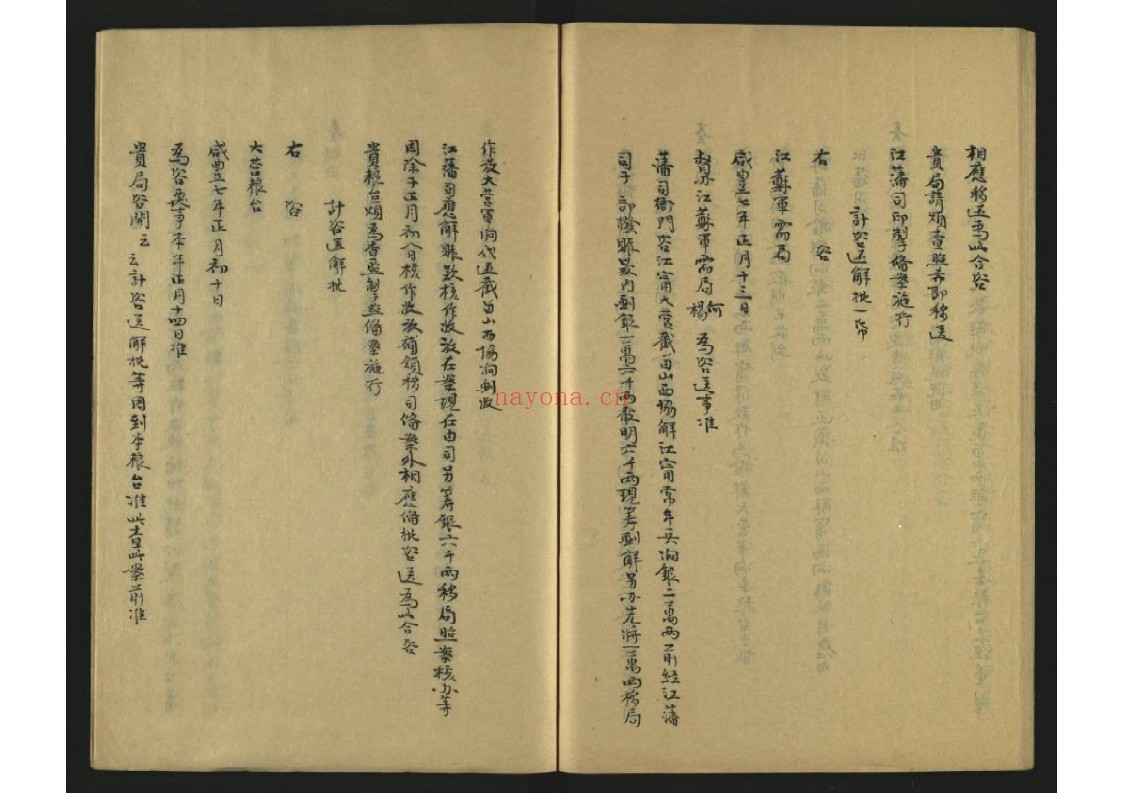 相應移送為此合咨
貴局請煩查照希即移送
江藩司印掣備案施行
計咨送解批一帋
右咨
江蘇軍需局
咸豐七年正月十三日
督辦江蘇軍需局何楊為咨送事准
藩司衙門咨江甯大營截留山西協解江甯常年兵餉銀二萬兩前經江藩
司于部撥賑款內劃銀一萬六千兩聲明六千兩現籌劃解另辦先將一萬兩移局
作放大營軍餉代還截留山西協餉劃收
江藩司應解賬款核作收放在案現在由司另籌銀六千兩移局照案核办等
因除于正月初八日核作收放補領移司備案外相應備批咨送為此合咨
貴糧台煩為查照掣照備案施行
計咨送解批
右咨
大營糧台
咸豐七年正月初十日
為咨覆事本年正月十四日准
貴局咨開云云計咨送解批等因到本糧台准此查此案前准
nayona.cn